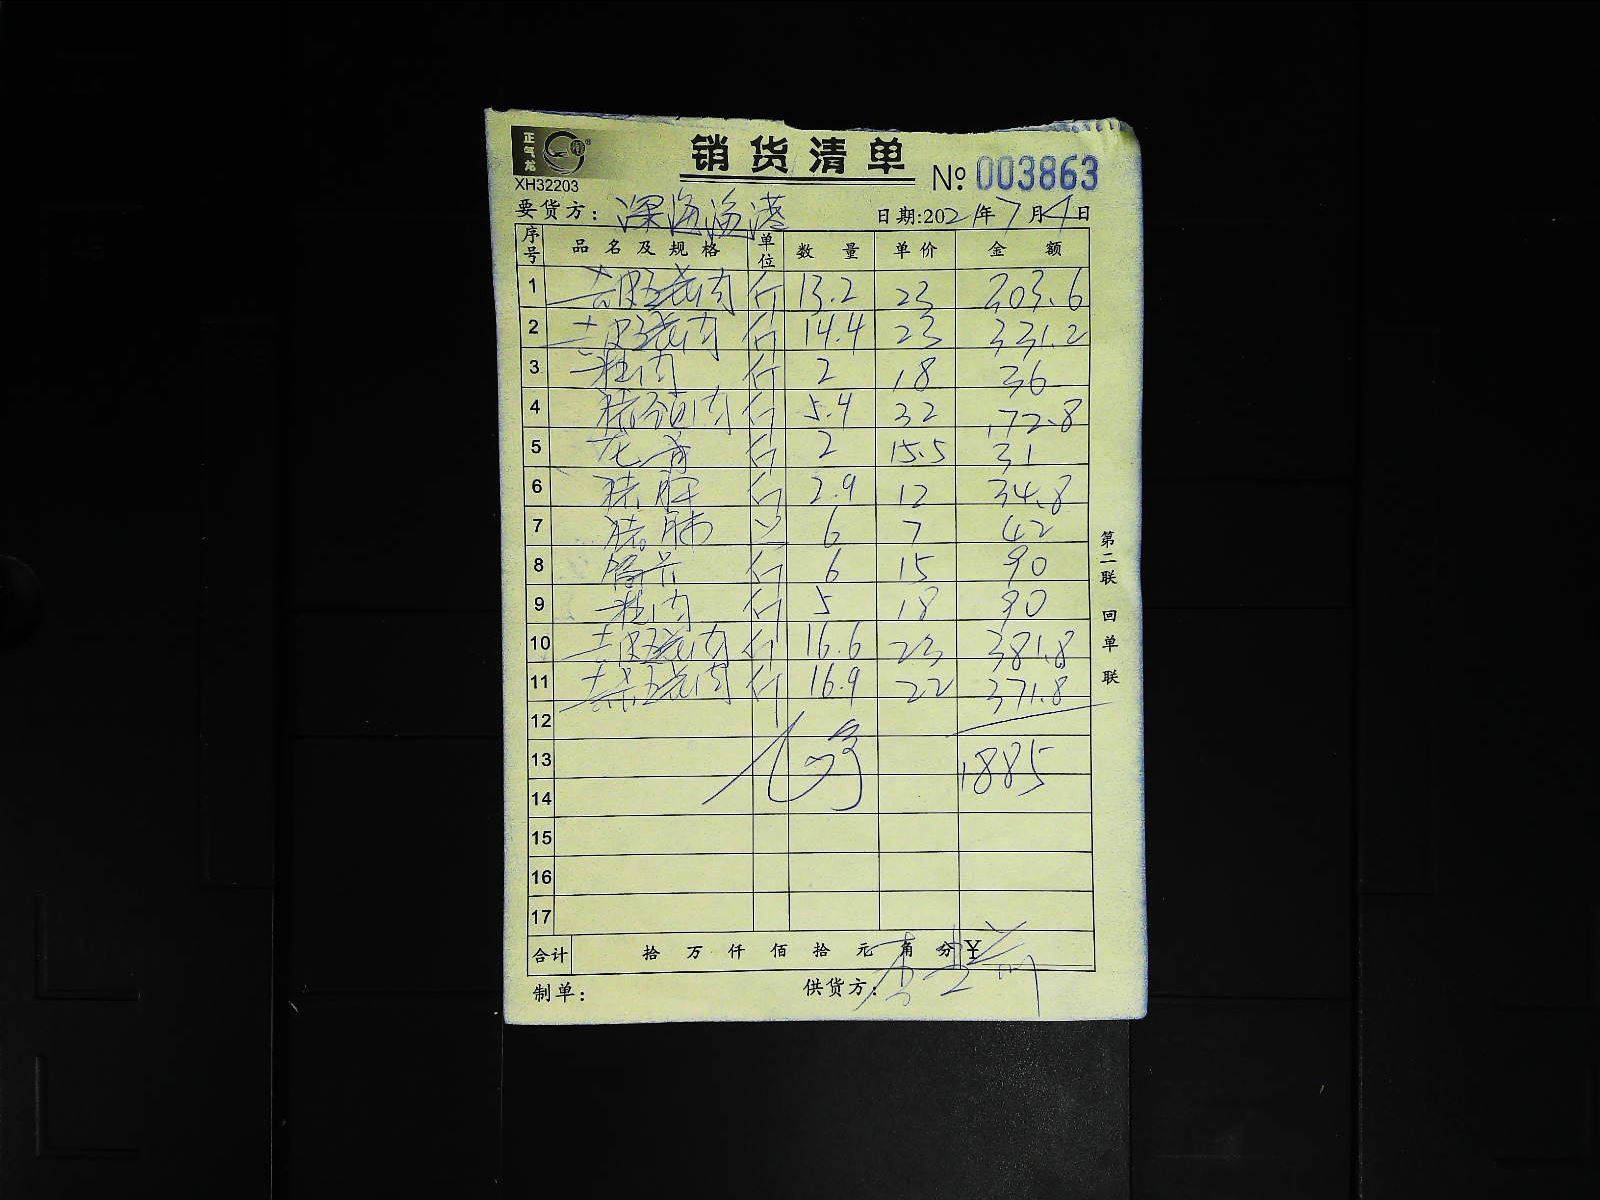 正气龙
XH32203
销货清单
№ 003863
要货方: 深海渔港 日期:2021年7月4日
序号 品名及规格 单位 数量 单价 金额
1 土皮五花肉 斤 13.2 23 303.6
2 土皮五花肉 斤 14.4 23 331.2
3 肉 斤 2 18 36
4 猪颈肉 斤 5.4 32 172.8
5 龙骨 斤 2 15.5 31
6 猪肝 斤 2.9 12 34.8
7 猪肺 只 6 7 42
8 斤 6 15 90
9 肉 斤 5 18 90
10 土皮五花肉 斤 16.6 23 381.8
11 土 五花肉 斤 16.9 22 371.8
12
13 1885
14
15
16
17
合计 拾 万 仟 佰 拾 元 角 分 ¥
制单: 供货方:
第二联 回单联